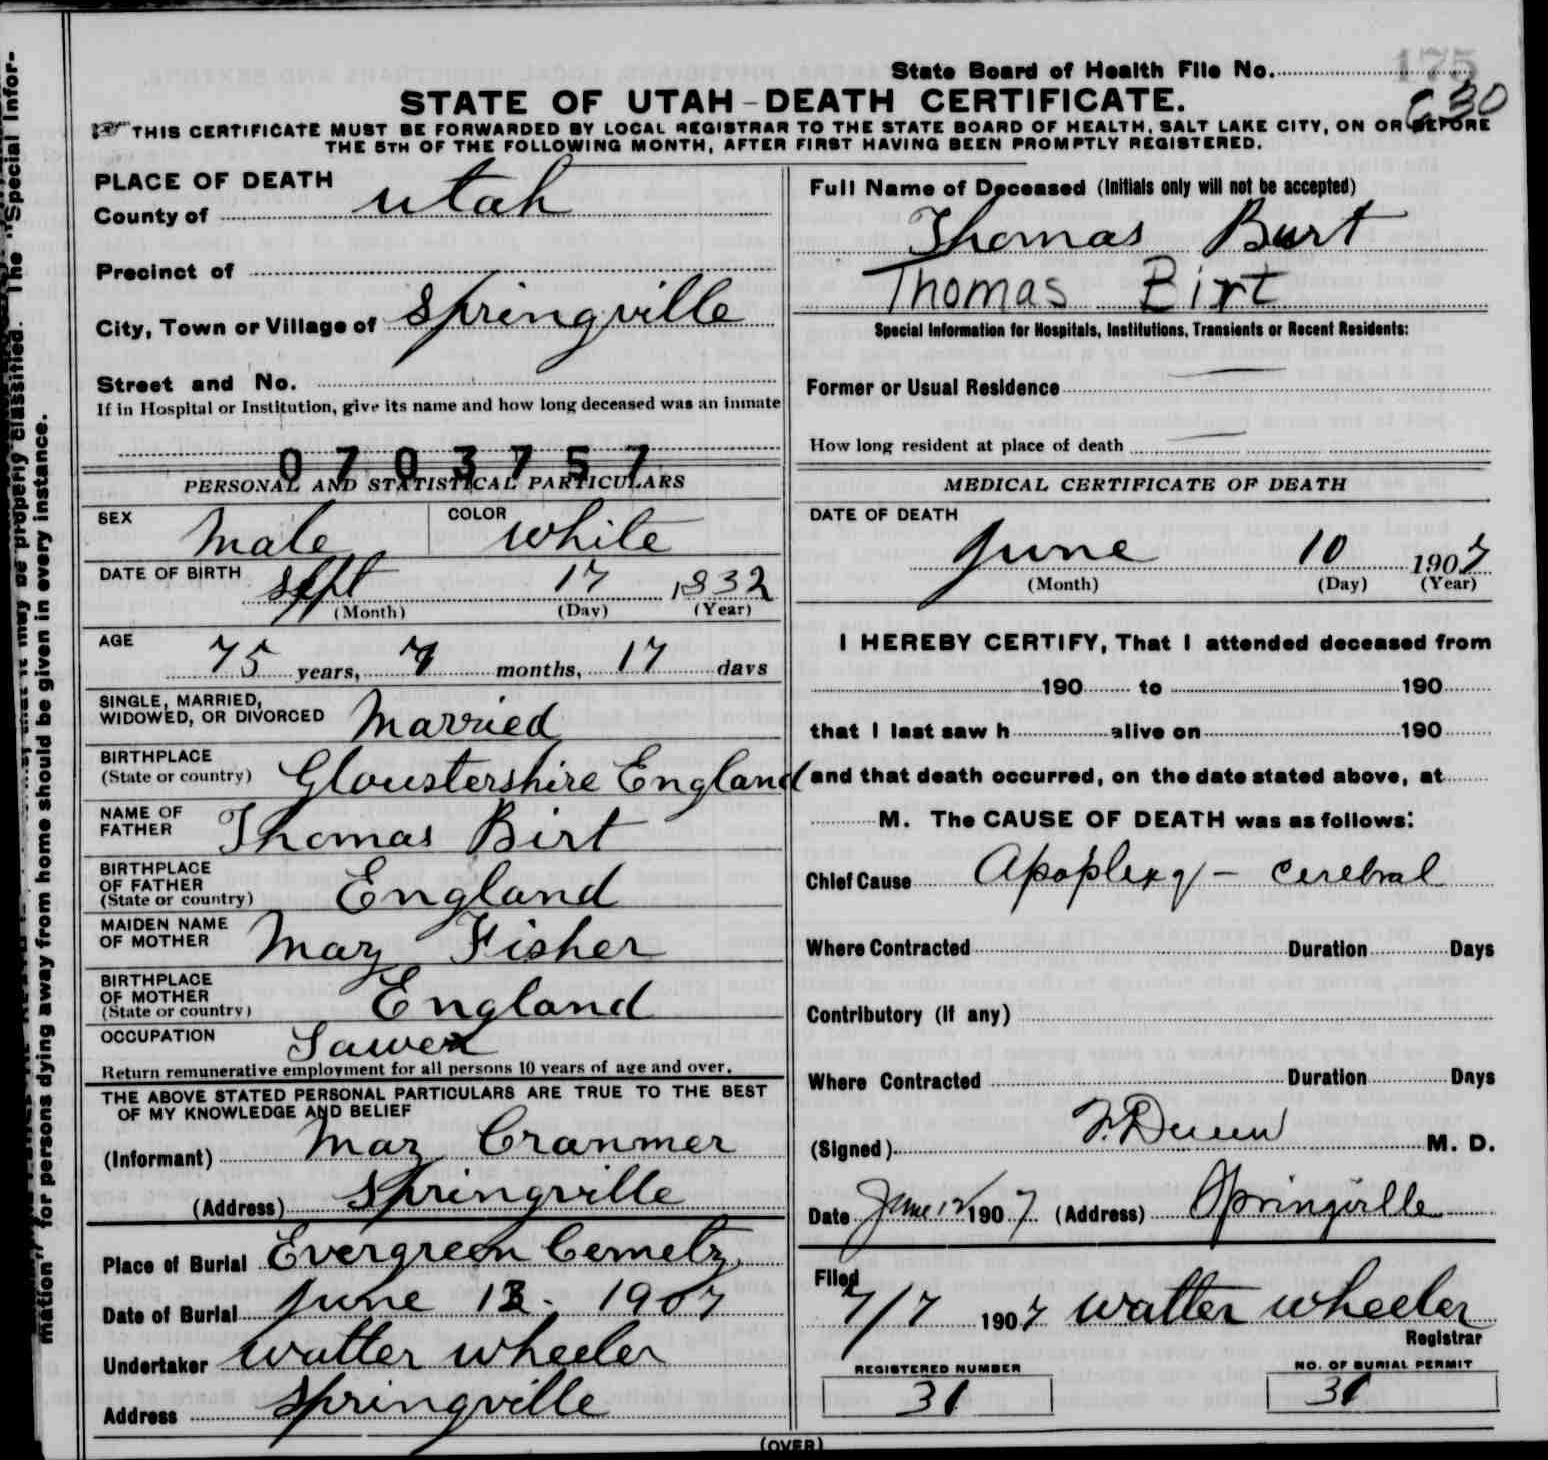 175
State Board of Health File No. 630
STATE OF UTAH-DEATH CERTIFICATE.
THIS CERTIFICATE MUST BE FORWARDED BY LOCAL REGISTRAR TO THE STATE BOARD OF HEALTH, SALT LAKE CITY, ON OR BEFORE
THE 5TH OF THE FOLLOWING MONTH, AFTER FIRST HAVING BEEN PROMPTLY REGISTERED.
PLACE OF DEATH
County of Utah
Precinct of
City, Town or Village of Springville
Street and No.
If in Hospital or Institution, give its name and how long deceased was an inmate
0703757
PERSONAL AND STATISTICAL PARTICULARS
SEX Male COLOR White
DATE OF BIRTH Sept 17 1832
(Month) (Day) (Year)
AGE 75 years, months, 17 days
SINGLE, MARRIED,
WIDOWED, OR DIVORCED Married
BIRTHPLACE
(State or country) Gloustershire England
NAME OF
FATHER Thomas Birt
BIRTHPLACE
OF FATHER
(State or country) England
MAIDEN NAME
OF MOTHER Mary Fisher
BIRTHPLACE
OF MOTHER
(State or country) England
OCCUPATION Sawer
Return remunerative employment for all persons 10 years of age and over.
THE ABOVE STATED PERSONAL PARTICULARS ARE TRUE TO THE BEST
OF MY KNOWLEDGE AND BELIEF
(Informant) Mary Cranmer
(Address) Springville
Place of Burial Evergreen Cemety
Date of Burial June 13. 1907
Undertaker Walter Wheeler
Address Springville
Full Name of Deceased (Initials only will not be accepted)
Thomas Burt
Thomas Birt
Special Information for Hospitals, Institutions, Transients or Recent Residents:
Former or Usual Residence
How long resident at place of death
MEDICAL CERTIFICATE OF DEATH
DATE OF DEATH
June 10 1907
(Month) (Day) (Year)
I HEREBY CERTIFY, That I attended deceased from
190 to 190
that I last saw h alive on 190
and that death occurred, on the date stated above, at
M. The CAUSE OF DEATH was as follows:
Chief Cause Apoplexy - cerebral
Where Contracted Duration Days
Contributory (if any)
Where Contracted Duration Days
(Signed) F. Dunn M. D.
Date June 12 1907 (Address) Springville
Filed
7/7 1907 Walter Wheeler
Registrar
REGISTERED NUMBER
31
NO. OF BURIAL PERMIT
31
(OVER)
properly classified. The "Special Infor-
mation" for persons dying away from home should be given in every instance.